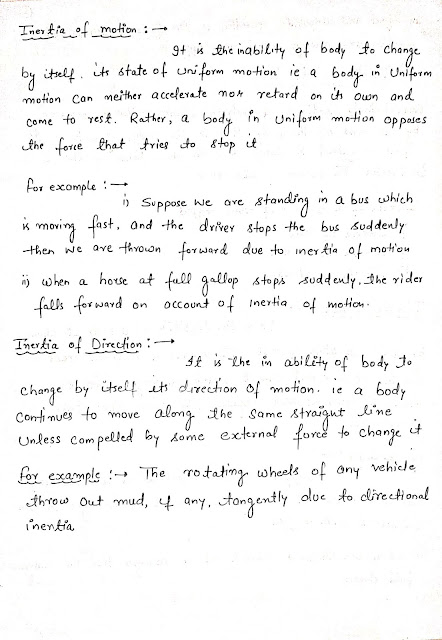 Inertia of motion :→
It is the inability of body to change
by itself, its state of uniform motion ie a body in Uniform
motion can neither accelerate nor retard on its own and
come to rest. Rather, a body in Uniform motion opposes
the force that tries to stop it
for example :→
i) Suppose we are standing in a bus which
is moving fast, and the driver stops the bus suddenly
then we are thrown forward due to inertia of motion
ii) when a horse at full gallop stops suddenly, the rider
falls forward on account of inertia of motion.
Inertia of Direction :→
It is the in ability of body to
change by itself its direction of motion. ie a body
continues to move along the same straignt line
Unless compelled by some external force to change it
for example :→ The rotating wheels of any vehicle
throw out mud, if any, tangently due to directional
inertia